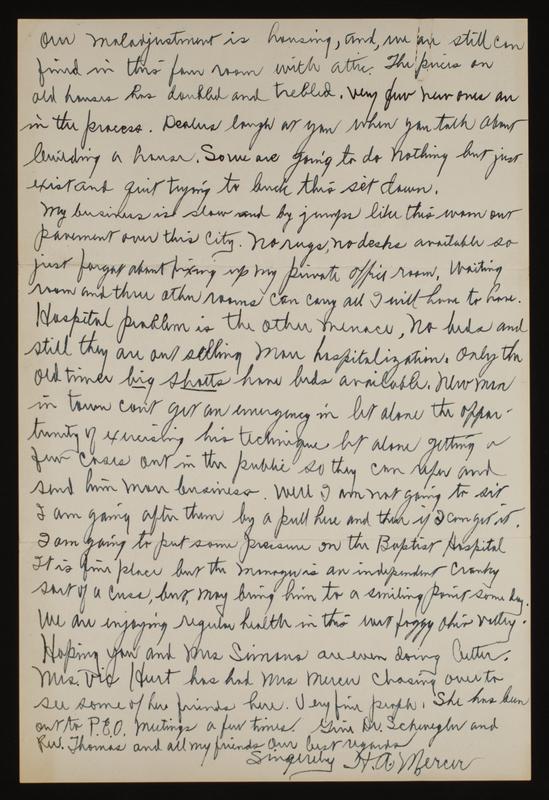 Our maladjustment is housing, and, we are still con
fined in this four room with attic. The prices on
old houses has doubled and trebled. Very few new ones are
in the process. Dealers laugh at you when you talk about
building a house. Some are going to do nothing but just
exist and quit trying to buck this set down.
My business is slow and by jumps like this worn out
pavement over this city. No rugs, no desks available so
just forgot about fixing up my private office room. Waiting
room and three other rooms can carry all I will have to have.
Hospital problem is the other menace, no beds and
still they are out selling more hospitalization. Only the
old timer big shotts have beds available. New men
in town can't get an emergency in let alone the oppor-
tunity of exercising his technique let alone getting a
few cases out in the public so they can refer and
send him more business. Well I am not going to sit
I am going after them by a pull here and there if I can get it.
I am going to put some pressure on the Baptist Hospital
It is fine place but the manager is an independent cranky
sort of a cuse, but, may bring him to a smiling point some day.
We are enjoying regular health in this wet foggy Ohio valley.
Hoping you and Mrs Simons are even doing better.
Mrs. Hurt has had Mrs Mercer chasing over to
see some of her friends here. Very fine people. She has been
out to P.E.O. meetings a few times. Give Dr. Schwegler and
Rev. Thomas and all my friends our best regards
Sincerely H. A. Mercer